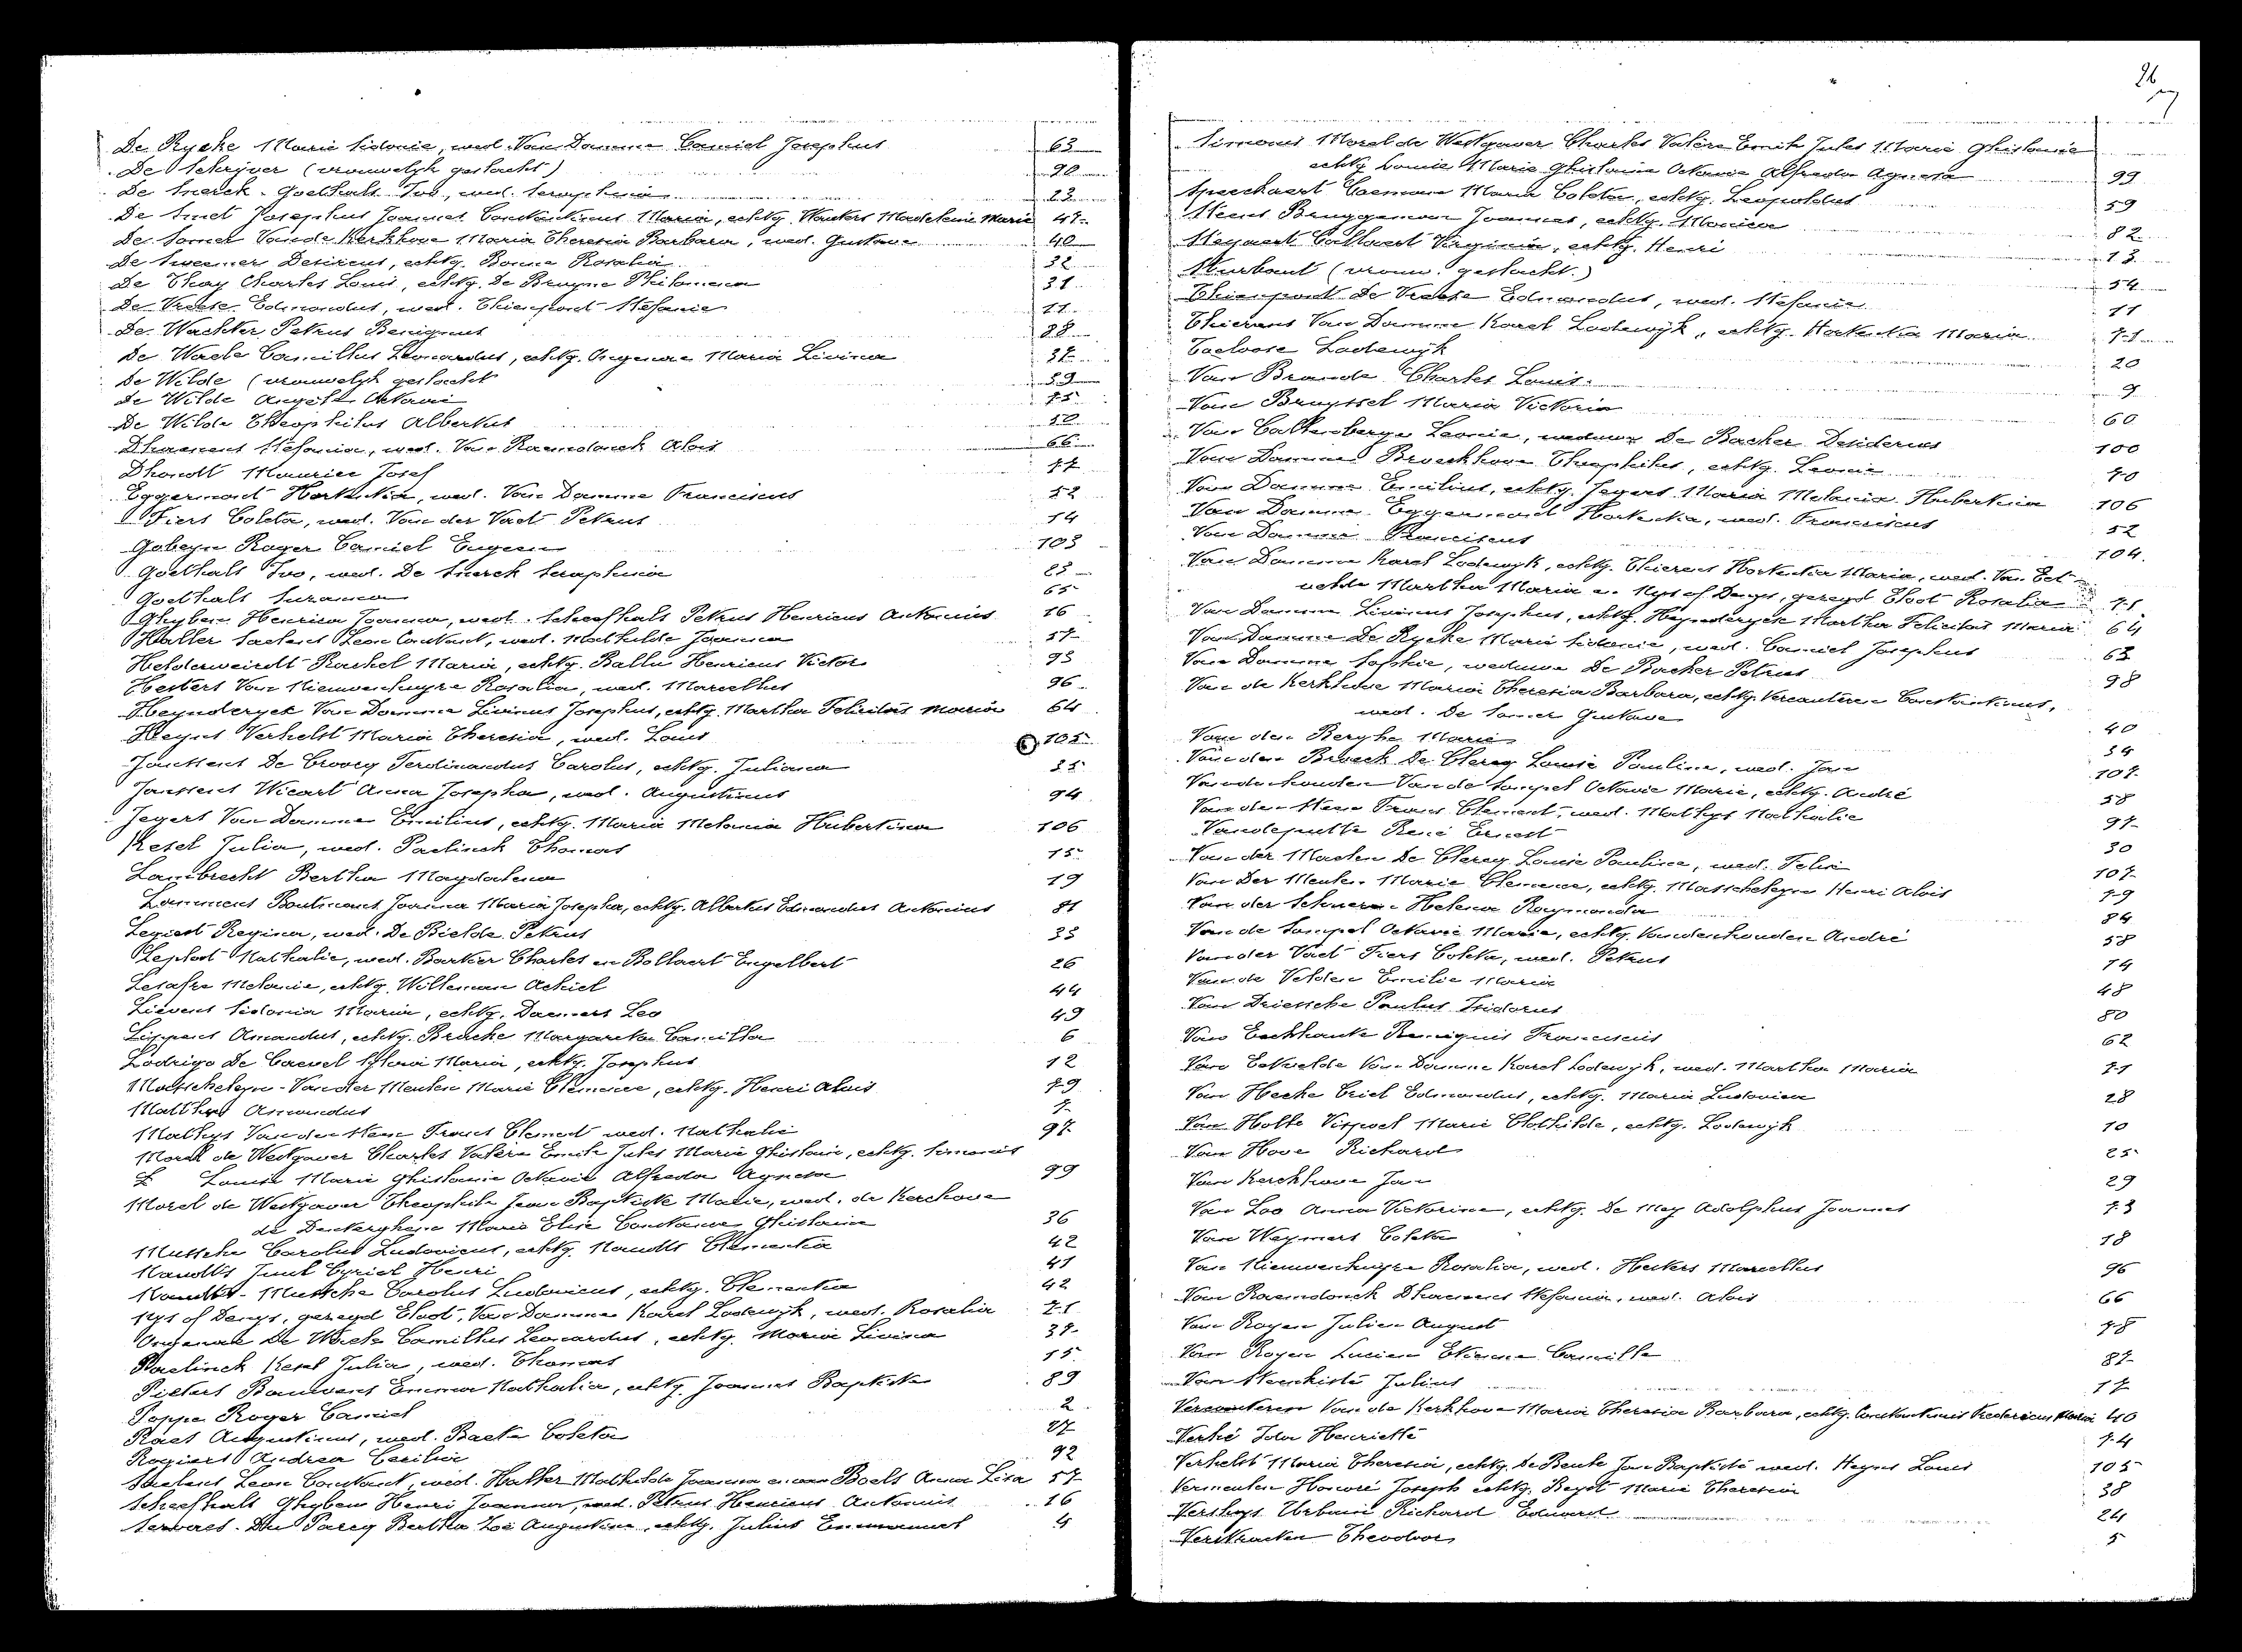 De Rycke Marie Sidonie, wed. Van Damme Camiel Josephus 63
De Schrijver (vrouwelijk geslacht) 90
De Smerck - Goethals Ivo, wed. Seraphina 23
De Smet Josephus Joannes Constantinus Maria, echtg. Wauters Madeleine Marie 47
De Somer Van de Kerkhove Maria Theresia Barbara, wed. Gustave 40
De Sweemer Desireus, echtg. Bonne Rosalia 32
De Thay Charles Louis, echtg. De Bruyne Philomena 31
De Vreese Edmondus, wed. Thienpont Stefanie 11
De Wachter Petrus Benignus 88
De Waele Camillus Leonardus, echtg. Ongenae Maria Livina 37
De Wilde (vrouwelijk geslacht 59
De Wilde Angèle Octavie 75
De Wilde Theophilus Albertus 50
Dhaenens Stefania, wed. Van Raemdonck Alois 66
Dhondt Maurice Josef 77
Eggermont Hortentia, wed. Van Damme Franciscus 52
Fiers Coleta, wed. Van der Vaet Petrus 14
Gobeyn Roger Camiel Eugeen 103
Goethals Ivo, wed. De Smerck Seraphina 23
Goethals Suzanna 65
Ghyben Henrica Joanna, wed. Scheefhals Petrus Henricus Antonius 16
Haller Saelens Leon Constant, wed. Mathilde Joanna 57
Helderweirdt Rachel Maria, echtg. Ballu Henricus Victor 93
Hesters Van Nieuwenhuyze Rosalia, wed. Marcellus 96
Heynderyck Van Damme Livinus Josephus, echtg. Martha Felicitas Maria 64
Heyns Verhelst Maria Theresia, wed. Louis 105
Janssens De Croocy Ferdinandus Carolus, echtg. Juliana 35
Janssens Wicart Anna Josepha, wed. Augustinus 94
Jegers Van Damme Emilius, echtg. Maria Melania Hubertina 106
Kesel Julia, wed. Paelinck Thomas 15
Lambrecht Bertha Magdalena 19
Lammens Boutmans Joanna Maria Josepha, echtg. Albertus Edmondus Antonius 81
Legiest Regina, wed. De Bielde Petrus 33
Leplat Nathalie, wed. Barkier Charles en Bollaert Engelbert 26
Lesafre Melanie, echtg. Willeman Achiel 44
Lievens Sidonia Maria, echtg. Daemers Leo 49
Lippens Amandus, echtg. Bracke Margareta Camilla 6
Lodrigo De Craevel Flora Maria, echtg. Josephus 12
Masscheleyn - Van der Meulen Marie Clemence, echtg. Henri Alois 79
Matthys Amandus 7
Mathys Van der Steen Frans Clement wed. Nathalie 97
Morel de Westgaver Charles Valère Emile Jules Marie Ghislain, echtg. Simonis
Louise Marie Ghislaine Octavie Alfreda Agnesa 99
Morel de Westgaver Theophile Jean Baptiste Marie, wed. de Kerchove
de Denterghem Marie Elise Constance Ghislaine 36
Mussche Carolus Ludovicus, echtg. Naudts Clementia 42
Naudts Juul Cyriel Henri 41
Naudts - Mussche Carolus Ludovicus, echtg. Clementia 42
Nys of Denys, gezegd Eloot, Van Damme Karel Lodewijk, wed. Rosalia 71
Ongenae De Waele Camillus Leonardus, echtg. Maria Livina 37
Paelinck Kesel Julia, wed. Thomas 15
Pieters Bauwens Emma Nathalia, echtg. Joannes Baptista 89
Poppe Roger Camiel 2
Raes Augustinus, wed. Baeta Coleta 27
Rogiers Andrea Cecilia 92
Saelens Leon Constant, wed. Haller Mathilde Joanna en van Boels Anna Lisa 57
Scheefhals Ghyben Henri Joanna, wed. Petrus Henricus Antonius 16
Serwaes - Du Parcy Bertha Zoë Augustine, echtg. Julius Emmanuel 4
26
Simonis Morel de Westgaver Charles Valère Emile Jules Marie Ghislain
echtg. Louise Marie Ghislaine Octavie Alfreda Agnesa 99
Speeckaert Coeman Maria Coleta, echtg. Leopoldus 59
Steens Bruggeman Joannes, echtg. Monica 82
Steyaert Callaert Virginia, echtg. Henri 13
Sturbaut (vrouw. geslacht.) 54
Thienpont De Vreese Edmondus, wed. Stefanie 11
Thierens Van Damme Karel Lodewijk, echtg. Hortentia Maria 71
Tseloose Lodewijk 20
Van Brande Charles Louis 9
Van Bruyssel Maria Victoria 60
Van Caltenberge Leonie, weduwe De Backer Desiderius 100
Van Damme Broeckhove Theophilus, echtg. Leonie 70
Van Damme Emilius, echtg. Jegers Maria Melania Hubertina 106
Van Damme Eggermont Hortentia, wed. Franciscus 52
Van Damme Franciscus 104
Van Damme Karel Lodewijk, echtg. Thierens Hortentia Maria, wed. Van Eet-
velde Martha Maria en Nys of Denys, gezegd Eloot Rosalia 71
Van Damme Livinus Josephus, echtg. Heynderyck Martha Felicitas Maria 64
Van Damme De Rycke Marie Sidonie, wed. Camiel Josephus 63
Van Damme Sophie, weduwe De Backer Petrus 98
Van de Kerkhove Maria Theresia Barbara, echtg. Vercauteren Constantinus,
wed. De Somer Gustave 40
Van den Berghe Marie 34
Van den Broeck De Clercq Louise Pauline, wed. Jan 107
Vandenhouden Van de Sompel Octavie Marie, echtg. André 58
Van der Steen Frans Clement, wed. Mathys Nathalie 97
Vandeputte René Ernest 30
Van der Maelen De Clercq Louise Pauline, wed. Felix 107
Van Der Meulen Marie Clemence, echtg. Masscheleyn Henri Alois 79
Van der Schueren Helena Raymonda 84
Van de Sompel Octavie Marie, echtg. Vandenhouden André 58
Van der Vaet Fiers Coleta, wed. Petrus 14
Van de Velden Emilie Maria 48
Van Driessche Paulus Isidorus 80
Van Eeckhaute Remiguis Franciscus 62
Van Eetvelde Van Damme Karel Lodewijk, wed. Martha Maria 71
Van Hecke Criel Edmondus, echtg. Maria Ludovica 28
Van Holle Vispoel Marie Clothilde, echtg. Lodewijk 10
Van Hove Richard 25
Van Kerckhove Jan 29
Van Loo Anna Victorine, echtg. De Mey Adolphus Joannes 73
Van Weymers Coleta 18
Van Nieuwenhuyze Rosalia, wed. Hesters Marcellus 96
Van Raemdonck Dhaenens Stefania, wed. Alois 66
Van Royen Julien August 78
Van Royen Lucien Etienne Camille 87
Van Steenkiste Julius 17
Vercauteren Van de Kerkhove Maria Theresia Barbara, echtg. Constantinus Fredericus Maria 40
Verhé Ida Henriette 74
Verhelst Maria Theresia, echtg. De Beule Jan Baptiste wed. Heyns Louis 105
Vermeulen Honoré Joseph echtg. Beyst Marie Theresia 38
Versluys Urbain Richard Eduard 24
Verstraeten Theodoor 5